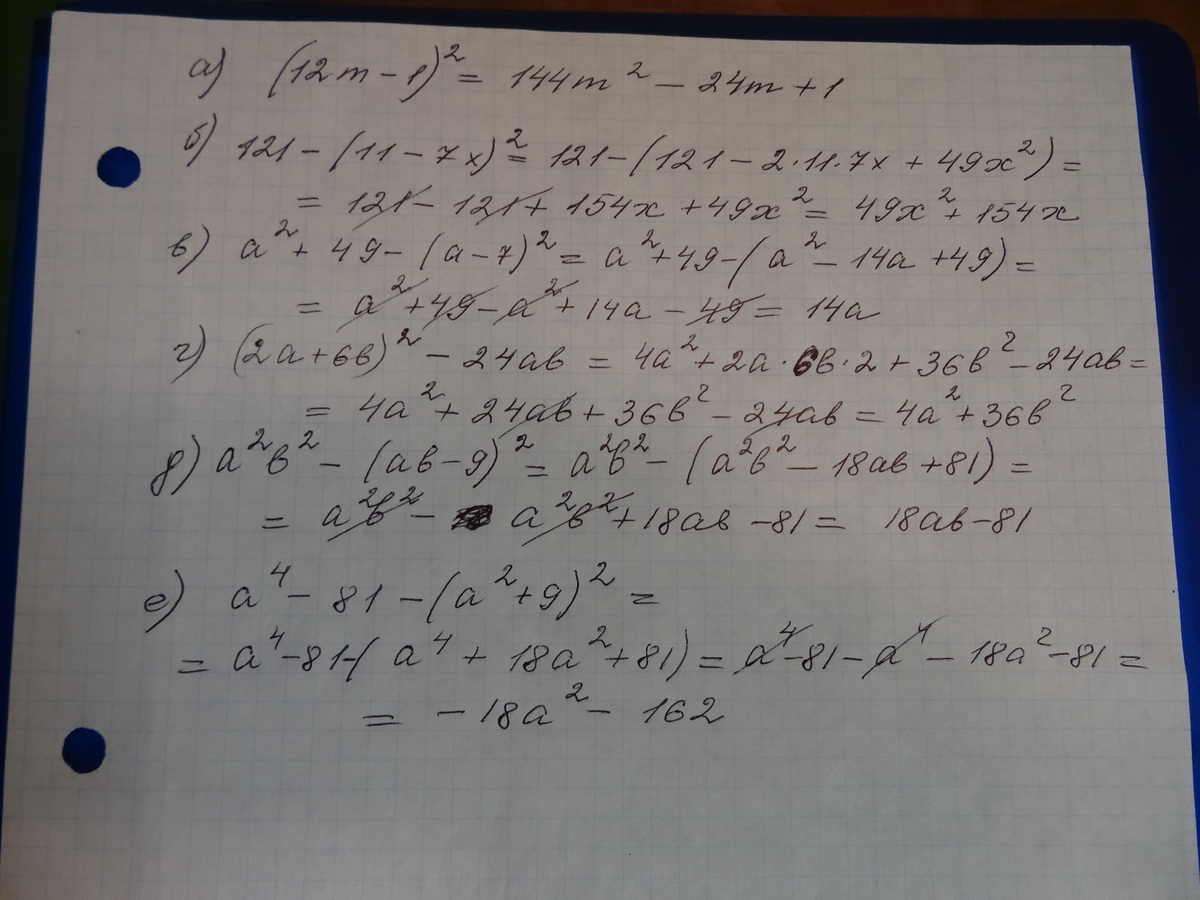 а) (12m - 1)² = 144m² - 24m + 1
б) 121 - (11 - 7x)² = 121 - (121 - 2·11·7x + 49x²) =
= 121 - 121 + 154x + 49x² = 49x² + 154x
в) a² + 49 - (a - 7)² = a² + 49 - (a² - 14a + 49) =
= a² + 49 - a² + 14a - 49 = 14a
г) (2a + 6b)² - 24ab = 4a² + 2a·6b·2 + 36b² - 24ab =
= 4a² + 24ab + 36b² - 24ab = 4a² + 36b²
д) a²b² - (ab - 9)² = a²b² - (a²b² - 18ab + 81) =
= a²b² - a²b² + 18ab - 81 = 18ab - 81
е) a⁴ - 81 - (a² + 9)² =
= a⁴ - 81 - (a⁴ + 18a² + 81) = a⁴ - 81 - a⁴ - 18a² - 81 =
= - 18a² - 162